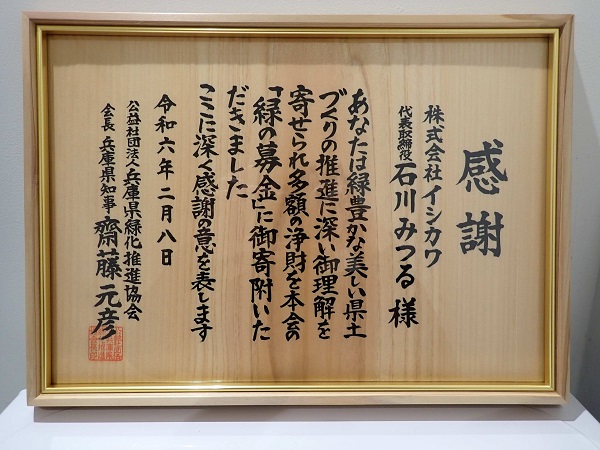 感謝
株式会社イシカワ
代表取締役 石川みつる 様
あなたは緑豊かな美しい県土
づくりの推進に深い御理解を
寄せられ多額の浄財を本会の
「緑の募金」に御寄附いた
だきました
ここに深く感謝の意を表します
令和六年二月八日
公益社団法人兵庫県緑化推進協会
会長 兵庫県知事 齋藤元彦